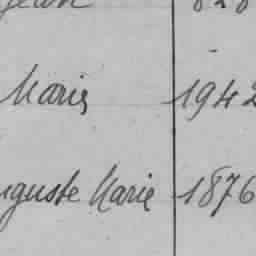 Marie 1942
Auguste Marie 1876